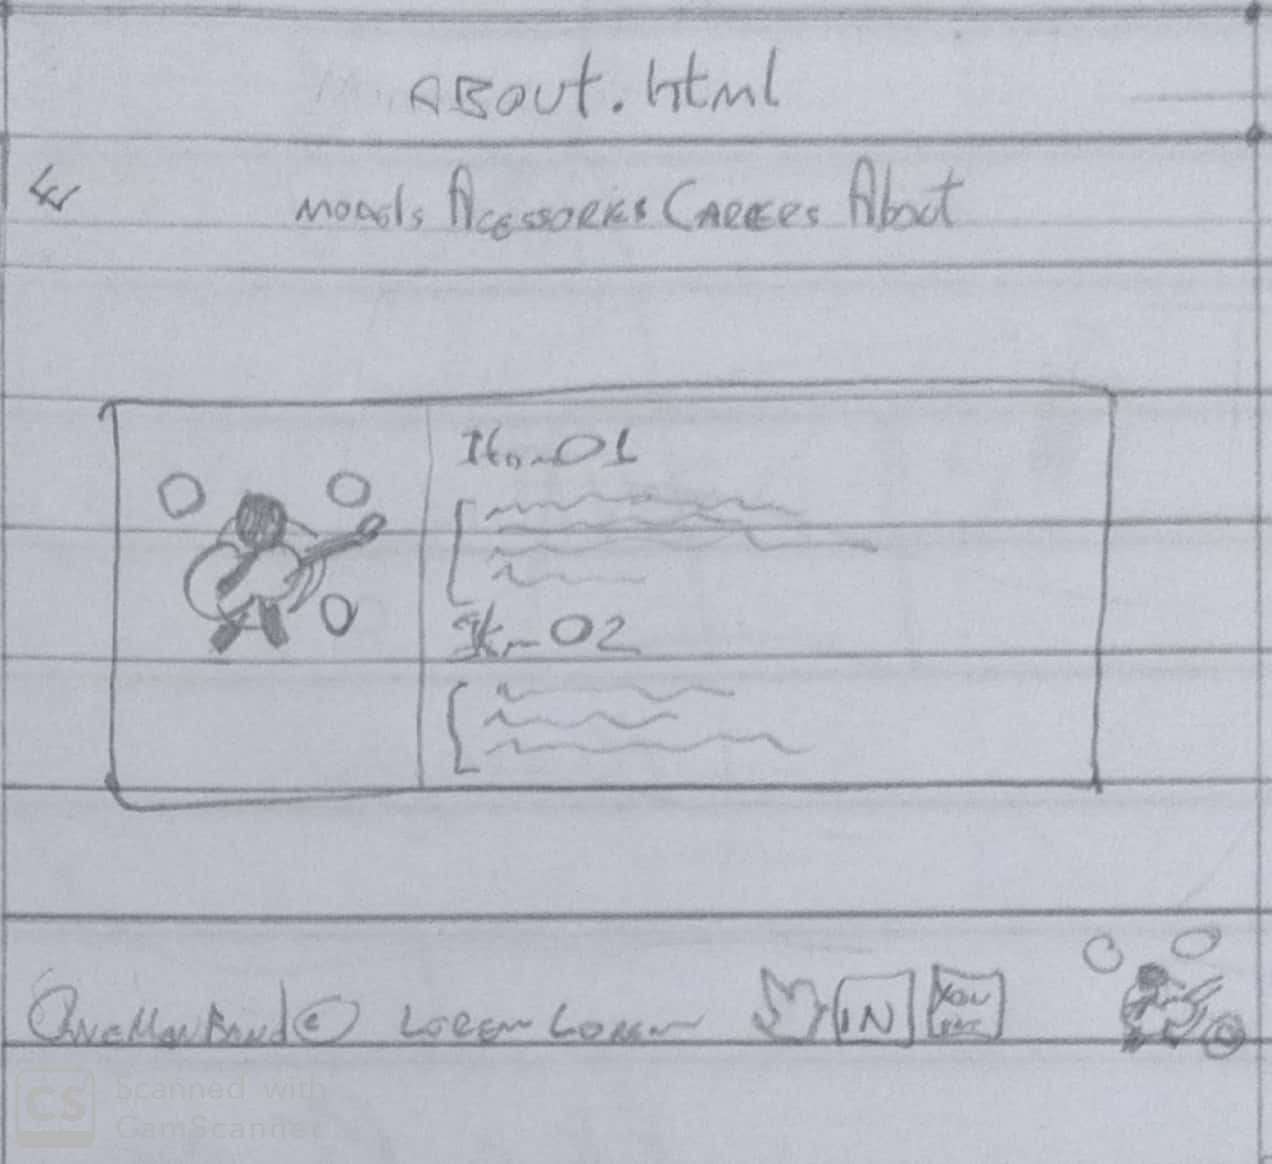 ABout.html
Models Acessories Careers About
Itm_01
Itm_02
OneManBand © Lorem Lorem IN You
CS Scanned with
CamScanner